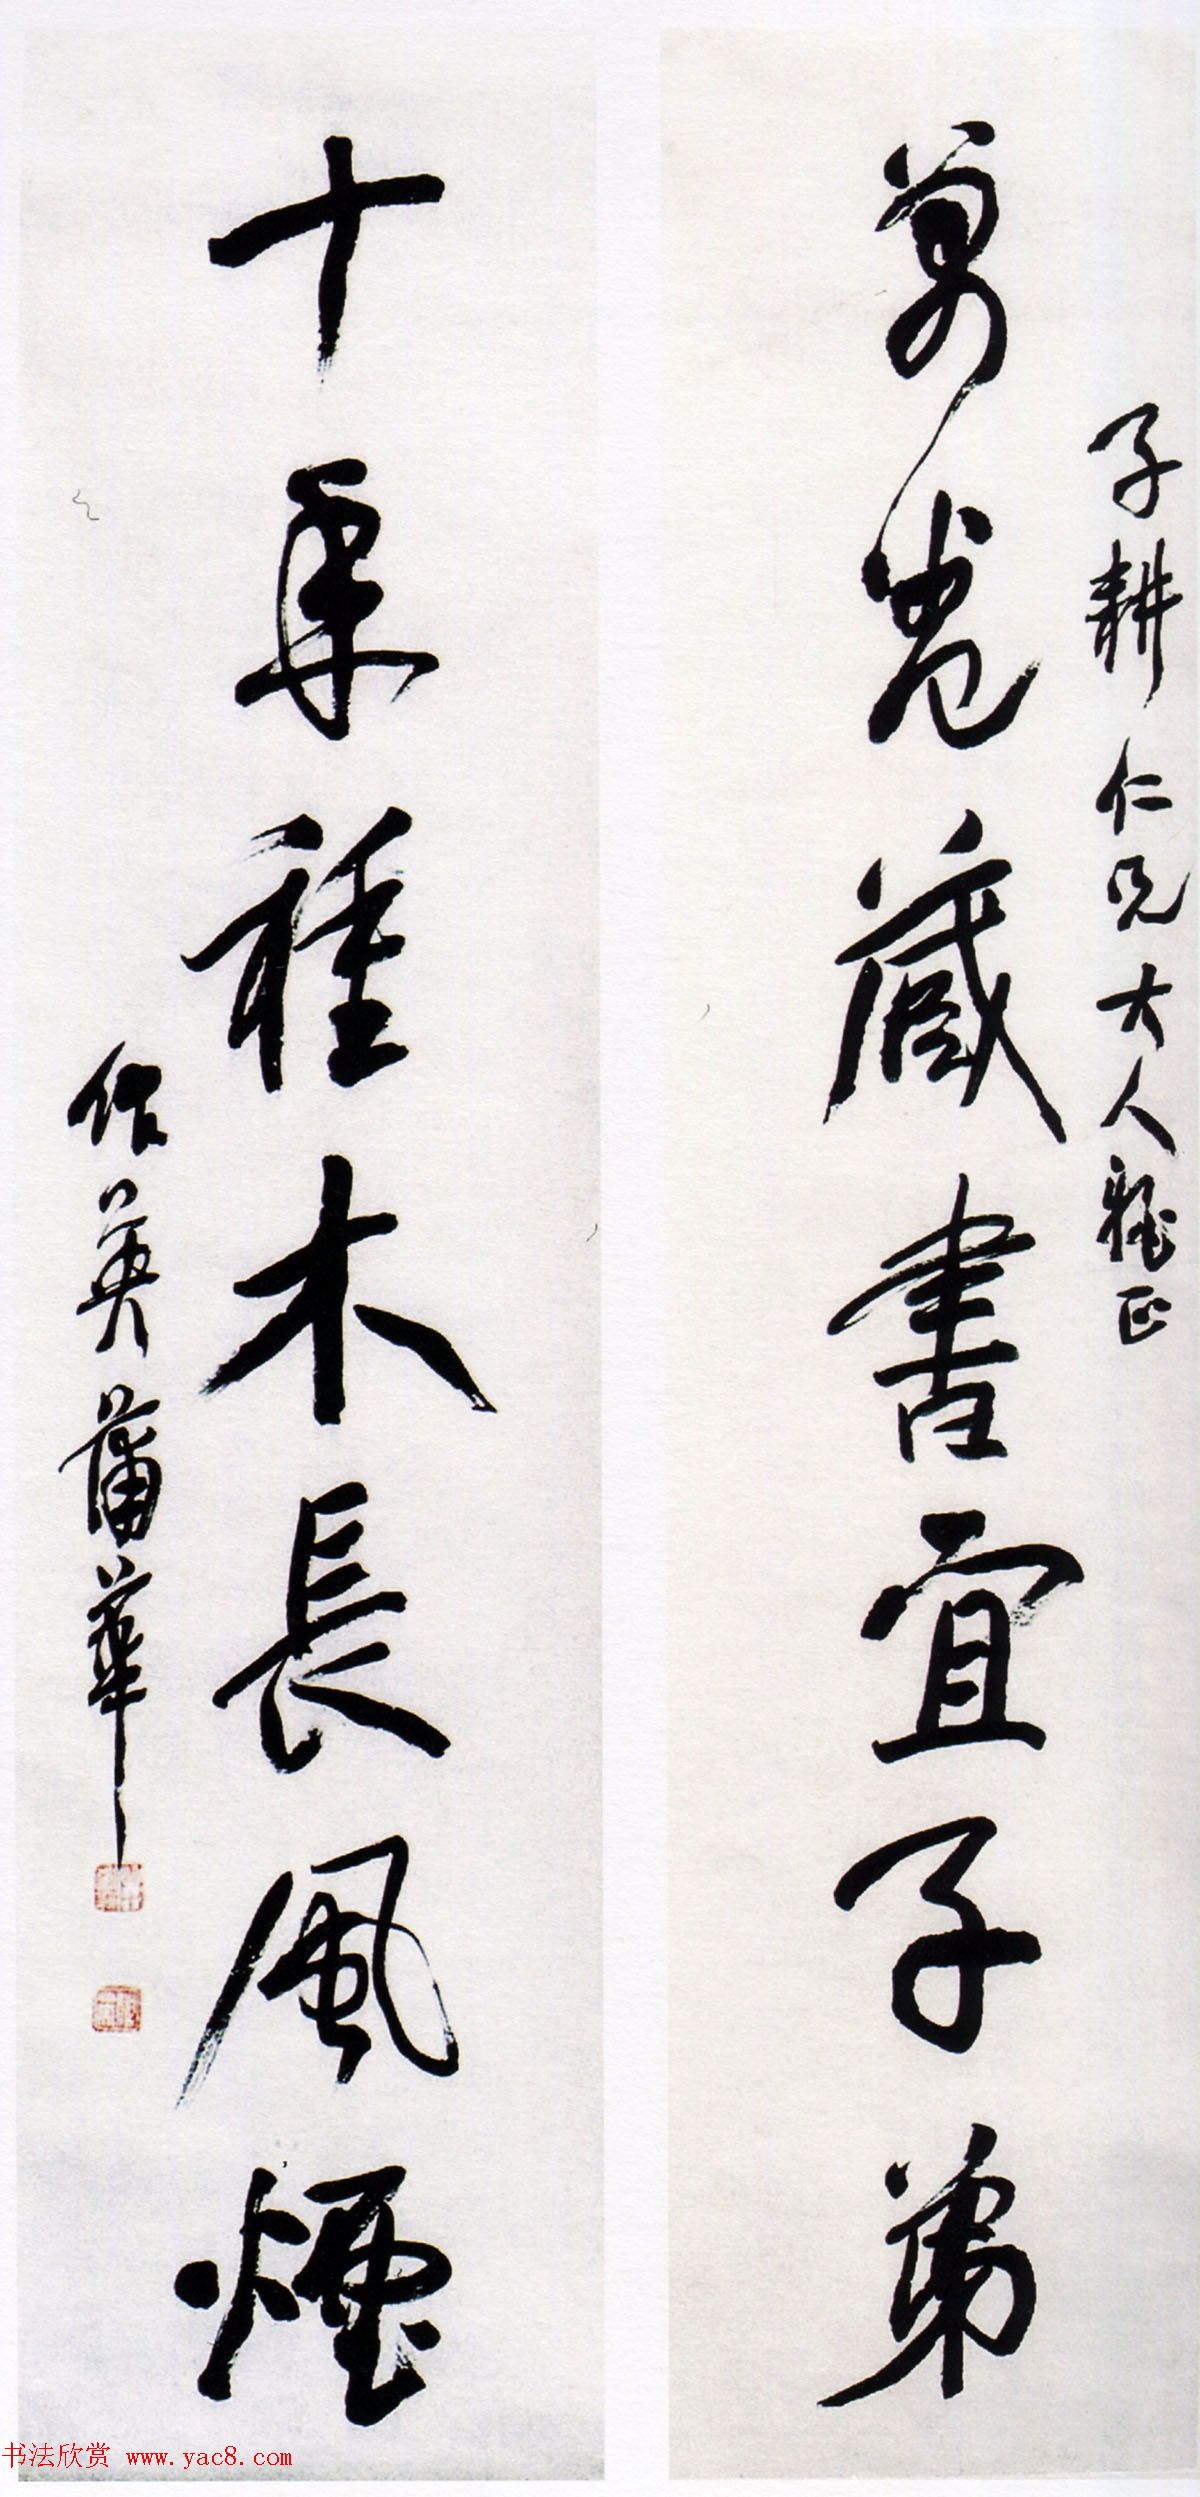 子耕仁兄大人雅正
萬卷藏書宜子弟
十年種木長風煙
作英蒲華
书法欣赏 www.yac8.com